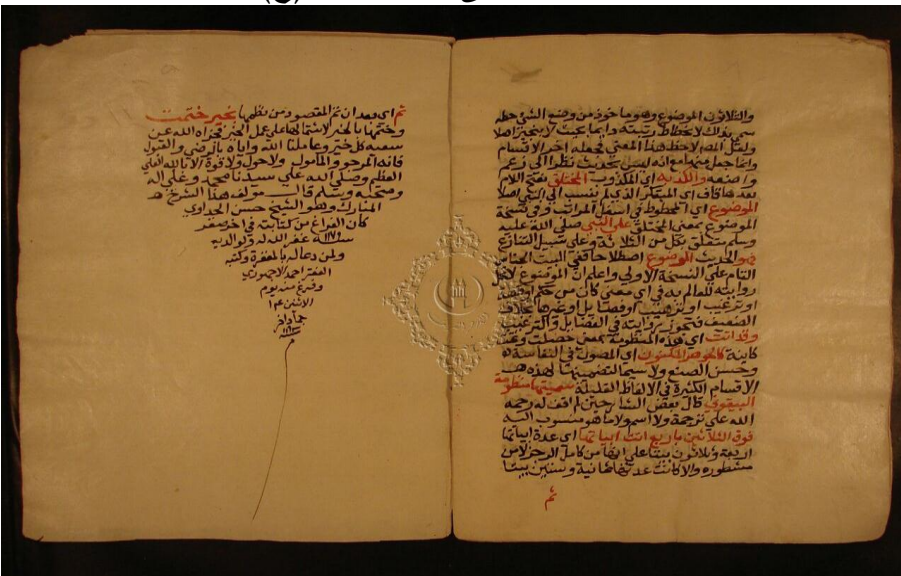 والثلاثون الموضوع وهو ماخوذ من وضع الشي حطه
سمي بذلك لانحطاط رتبته دايما بحيث لا ينجبر اصلا
ولعل المص لاحظ هذا المعني فجعله اخر الاقسام
وانما جعل منها مع انه ليس بحديث نظرا الي زعم
واضعه والكذب اي المكذوب المختلق بفتح اللام
بعدها قاف اي المبتكر الذي لا ينسب الي النبي اصلا
الموضوع اي المحطوط في اسفل المراتب وفي نسخة
الموضوع بمعني المختلق علي النبي صلي الله عليه
وسلم متعلق بكل من الثلاثة وعلي سبيل التنازع
فهو الحديث الموضوع اصطلاحا ففي البيت الجناس
التام علي النسخة الاولي واعلم ان الموضوع لا تحل
روايته للعالم به في اي معني كان من حكم او قصة
او ترغيب او ترهيب او فضايل وغيرها بخلاف
الضعيف فتجوز روايته في الفضايل والترغيب
وقد اتت اي هذه المنظومة بمعني حصلت وهي
كاينة كالجوهر المكنون اي المصون في النفاسة
وحسن الصنع ولا سيما لتضمنها لهذه
الاقسام الكثيرة في الالفاظ القليلة سميتها منظومة
البيقوني قال بعض الشارحين لم اقف له رحمه
الله علي ترجمة ولا اسم ولا ما هو منسوب اليه
فوق الثلاثين باربع اتت ابياتها اي عدة ابياتها
اربعة وثلاثون بيتا علي انها من كامل الرجز لا من
مشطوره والا كانت عدتها ثمانية وستين بيتا
ثم
ثم اي بعد ان تم المقصود من نظمها بخير ختمت
وختمها بالخير لاشتمالها علي عمل الخير فجزاه الله عن
سعيه كل خير وعاملنا الله واياه بالرضي والقبول
فانه المرجو والمامول ولا حول ولا قوة الا بالله العلي
العظيم وصلي الله علي سيدنا محمد وعلي اله
وصحبه وسلم قال مولفه هذا الشرح
المبارك وهو الشيخ حسن الجداوي
كان الفراغ من كتابته في اخر صفر
سنة ١١٧٩ غفر الله له ولوالديه
ولمن دعا له بالمغفرة وكتبه
الفقير احمد الاجهوري
وفرغ منه يوم
الاثنين
جماد اخر